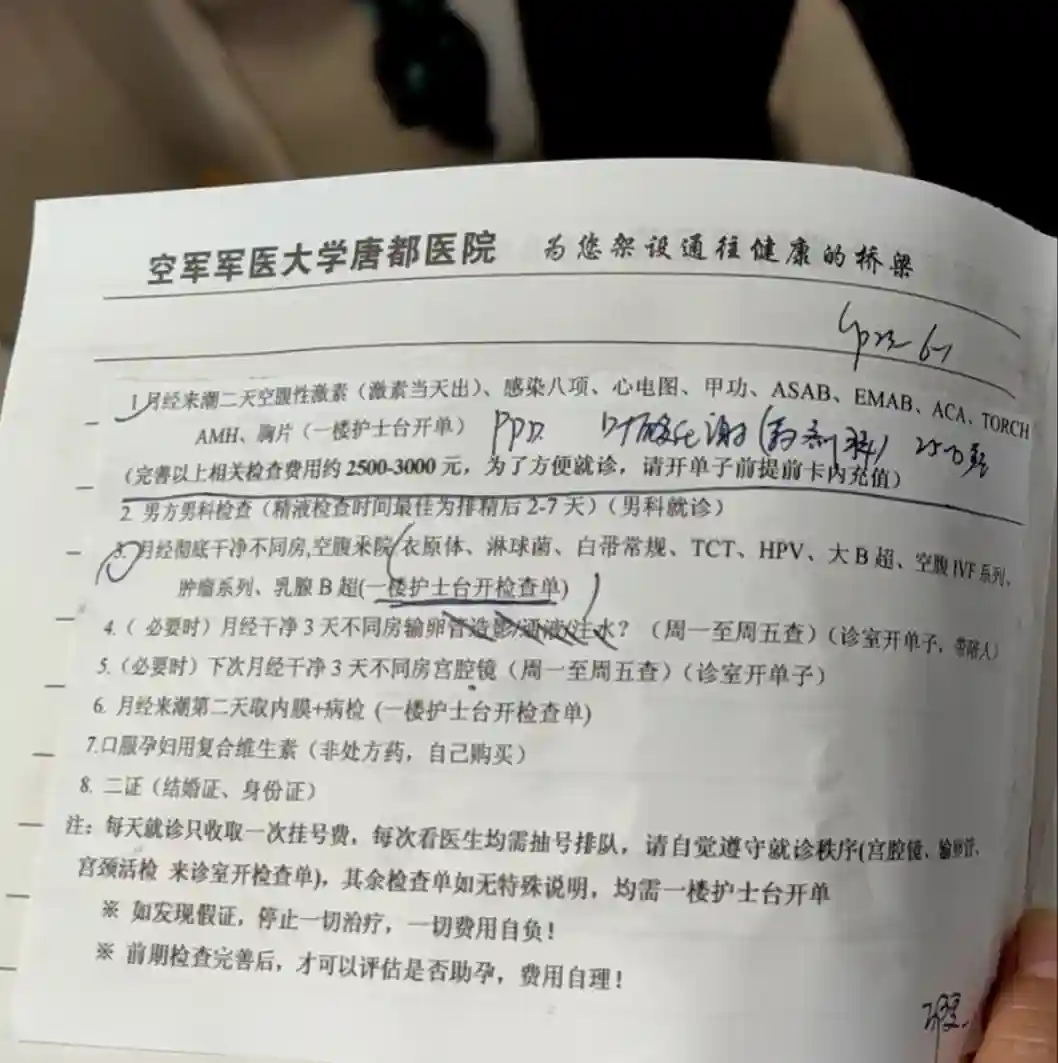 空军军医大学唐都医院 为您架设通往健康的桥梁
1 月经来潮二天空腹性激素（激素当天出）、感染八项、心电图、甲功、ASAB、EMAB、ACA、TORCH
AMH、胸片（一楼护士台开单） PPD 叶酸代谢
（完善以上相关检查费用约 2500-3000 元，为了方便就诊，请开单子前提前卡内充值）
2. 男方男科检查（精液检查时间最佳为排精后 2-7 天）（男科就诊）
3. 月经彻底干净不同房,空腹来院 衣原体、淋球菌、白带常规、TCT、HPV、大 B 超、空腹 IVF 系列、
肿瘤系列、乳腺 B 超(一楼护士台开检查单)
4.（ 必要时）月经干净 3 天不同房输卵管造影/通液/注水？（周一至周五查）（诊室开单子，带陪人）
5.（必要时）下次月经干净 3 天不同房宫腔镜（周一至周五查）（诊室开单子）
6. 月经来潮第二天取内膜+病检 (一楼护士台开检查单)
7.口服孕妇用复合维生素（非处方药，自己购买）
8. 二证（结婚证、身份证）
注：每天就诊只收取一次挂号费，每次看医生均需抽号排队，请自觉遵守就诊秩序(宫腔镜、输卵管、
宫颈活检 来诊室开检查单)，其余检查单如无特殊说明，均需一楼护士台开单
※ 如发现假证，停止一切治疗，一切费用自负！
※ 前期检查完善后，才可以评估是否助孕，费用自理！